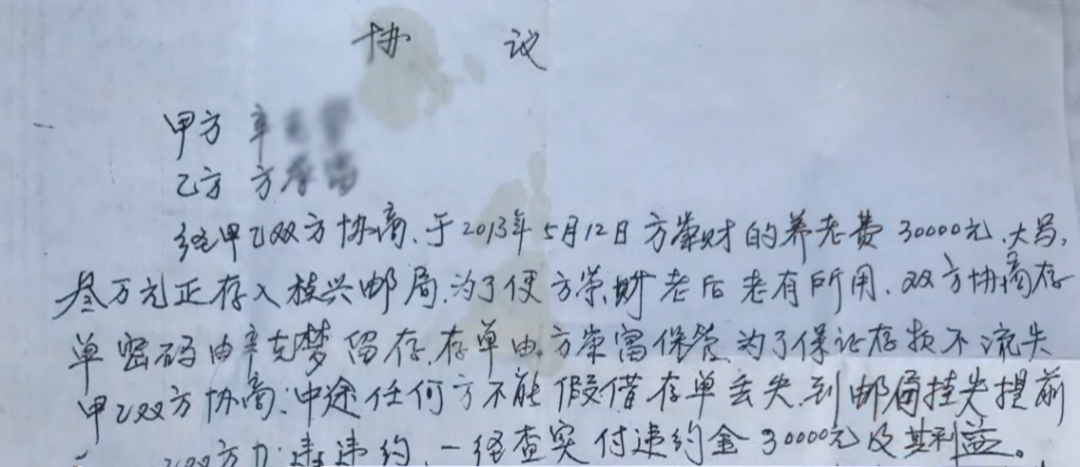 协 议
甲方 辛
乙方 方
经甲乙双方协商、于2013年5月12日方荣财的养老费30000元、大写,
叁万元正存入 兴邮局.为了使方荣财老后老有所用、双方协商存
单密码由辛克梦留存.存单由.方荣富保管.为了保证存款不流失
甲乙双方协商:中途任何方不能假借存单丢失.到邮局挂失提前
双方 违约、一经查实付违约金30000元及其利益。